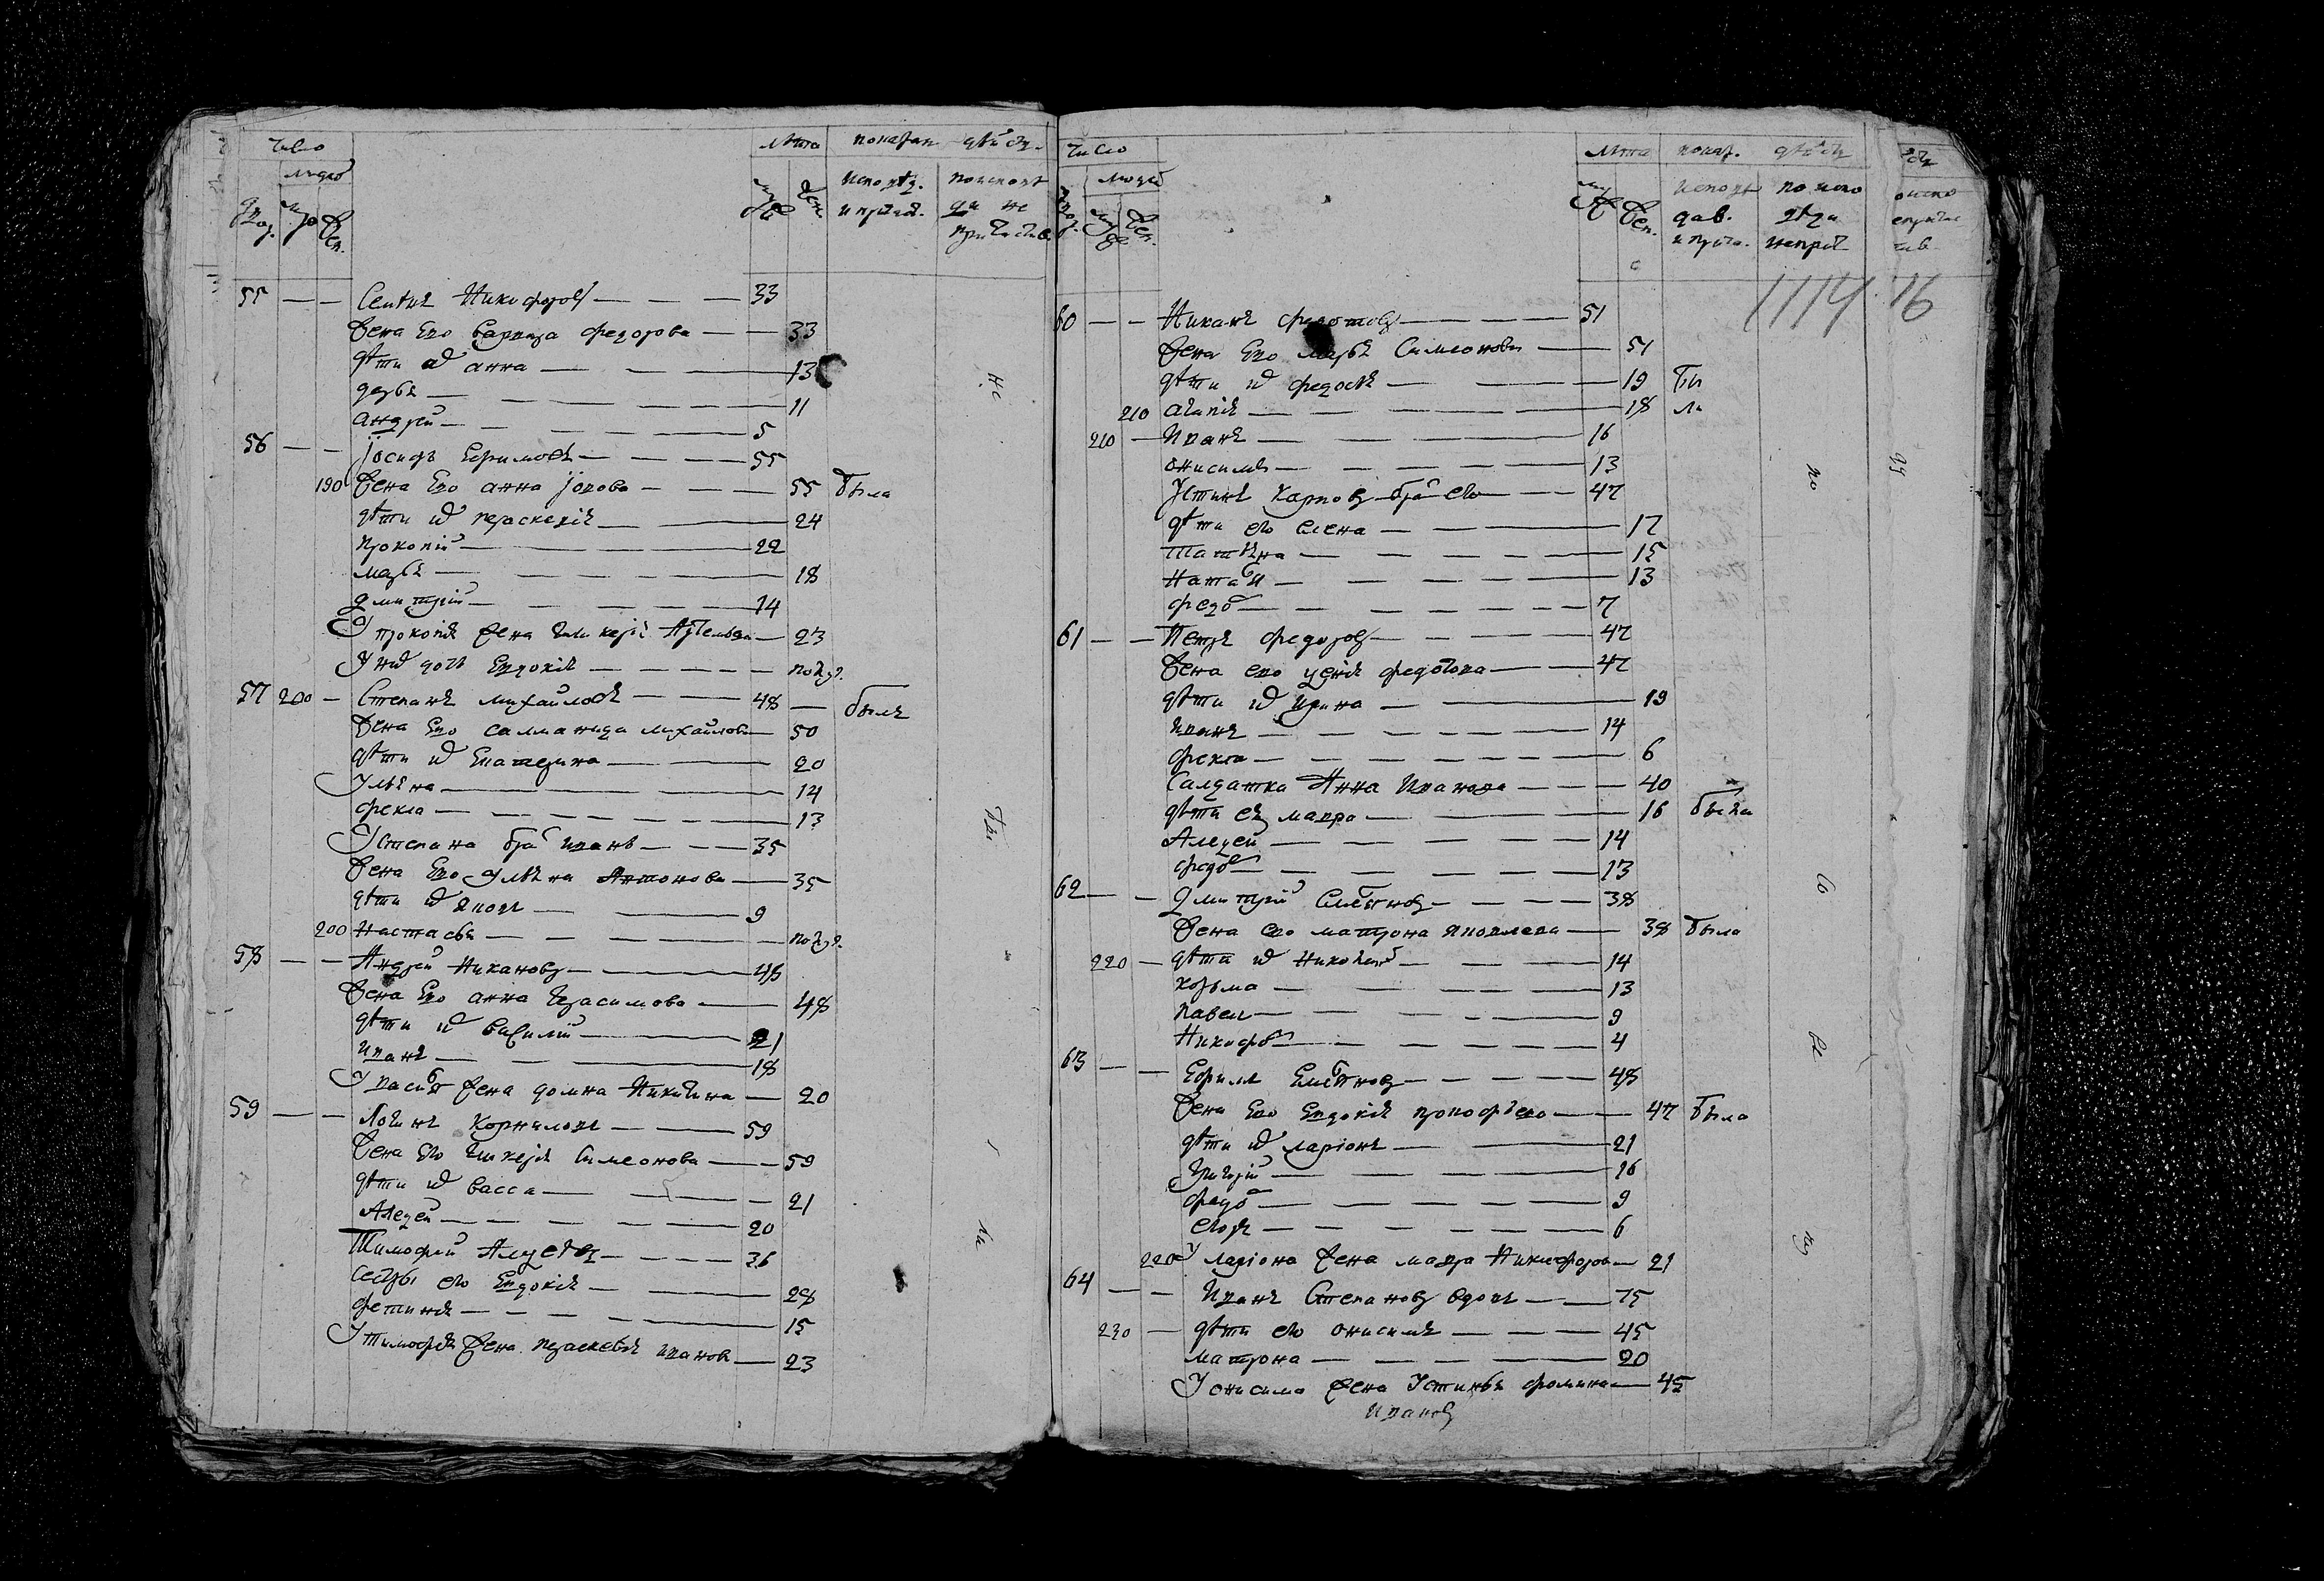 Число
людей
двор.
муж
жен.
лѣта
муже
жен
показан дѣйств.
исповѣд.
и причас.
по исповѣ
да не
причастив.
55 — — Семенъ Никифоровъ — — — 33
Жена Его варвара федорова — — 33
дѣти их анна — — — 13
дарья — — — — 11
андрей — — — — 5
56 — — Іосифъ Ефимовъ — — — 55
190 Жена Его анна іовова — — — 55 была
дѣти их параскевія — — 24
прокопій — — — 22
марья — — — — 18
дмитрій — — — — 14
У прокопія жена гликерія — 23
У них дочь Евдокія — — — — полуг.
57 200 — Степанъ михайловъ — — — 48 — былъ
Жена Его саламанида михайлова — 50
дѣти их Екатерина — — 20
Ульяна — — 14
фекла — — — — 13
У степана бра иванъ — — — 35
Жена Его Ульяна Антонова — 35
дѣти их яковъ — — 9
200 Настасья — — — — полуг.
58 — — Андрей Никановъ — — 48
Жена Его анна Герасимова — 48
дѣти их василій — 21
иванъ — — — 18
У василья жена домна Никитина — 20
59 — — Логинъ Корниловъ — — 59
Жена Его Гликерія Симеонова — — 59
дѣти их васса — — — 21
Алеѯей — — — — 20
Тимофей Алеѯеевъ — — — 36
Сестры ево Евдокія — — 28
фетинья — — — — 15
У тимофея жена параскевья иванова — 23
не
бы
ли
Число
людей
двор.
муж
жен.
лѣта
муж
жен.
показ. дѣйств
исповѣ
дав.
и прича.
по испо
вѣди
неприч
1114 16
60 — — Никонъ федотовъ — — — 51
Жена Его марья Симеонова — 51
дѣти их федосья — — 19 бы
210 агапія — — — 18 ли
210 — Иванъ — — — 16
онисимъ — — — — 13
Устинъ Карповъ бра ево — — 47
дѣти ево елена — — — 17
татьяна — — — — 15
наталья — — — — 13
федо — — — — 7
61 — — Петръ федоровъ — — — 47
Жена его ѯенія федотова — — 47
дѣти их ирина — — 19
иванъ — — — — 14
фекла — — — — 6
Салдатка Анна Иванова — — — 40
дѣти ея мавра — — 16 были
Алеѯей — — — — 14
федо — — — — 13
62 — — Дмитрій — — — 38
Жена ево матрона яковлева — 38 была
220 — дѣти их Николай — — — 14
козьма — — — — 13
павелъ — — — — 9
Никифо — — — — 4
63 — — Ефимъ — — — 48
Жена Его Евдокія прокофьева — 47 была
дѣти их ларіонъ — — 21
Григорій — — — 16
федо — — — — 9
егоръ — — — — 6
220 У ларіона жена мавра Никифорова — 21
64 — — Иванъ Степановъ вдовъ — — 75
230 — дѣти ево онисимъ — — — 45
матрона — — — — 20
У онисима жена Устинья фомина — 45
Ивановъ